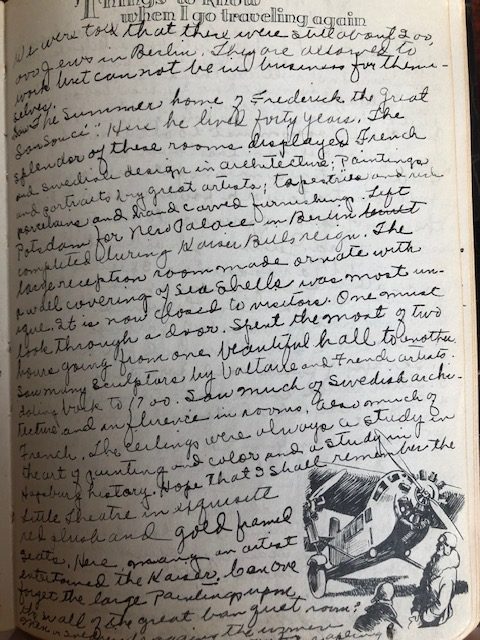 Things to know
when I go traveling again
We were told that there were still about 200,
000 Jews in Berlin. They are allowed to
work but can not be in business for them-
selves.
Saw The Summer home of Frederick the Great
San Souci". Here he lived forty years. The
splendor of these rooms displayed French
and Swedish design in architecture; Paintings
and portraits by great artists; tapestries and rich
porcelains and hand carved furnishing. Left
Potsdam for New Palace in Berlin
completed during Kaiser Bills reign. The
large reception room made ornate with
a wall covering of Sea Shells was most un-
ique. It is now closed to visitors. One must
look through a door. Spent the most of two
hours going from one beautiful hall to another.
Saw many sculptors by Voltaire and French artists.
dating back to 1700. Saw much of Swedish archi-
tecture and influence in rooms, also much of
French. The ceilings were always a study in
the art of painting and color and a study in
Hapsburg history. Hope that I shall remember the
little theatre in exquisite
red plush and gold framed
seats. Here, many an artist
entertained the Kaiser. Can one
forget the large Painting upon
the wall of the great banquet room?